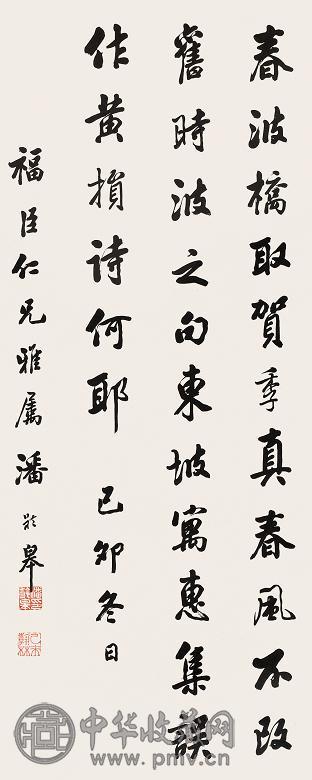 春波橋取賀季真春風不改
舊時波之句東坡寓惠集誤
作黄損诗何耶 己卯冬日
福臣仁兄雅属潘龄皋
中华收藏网
www.pmlv.cn